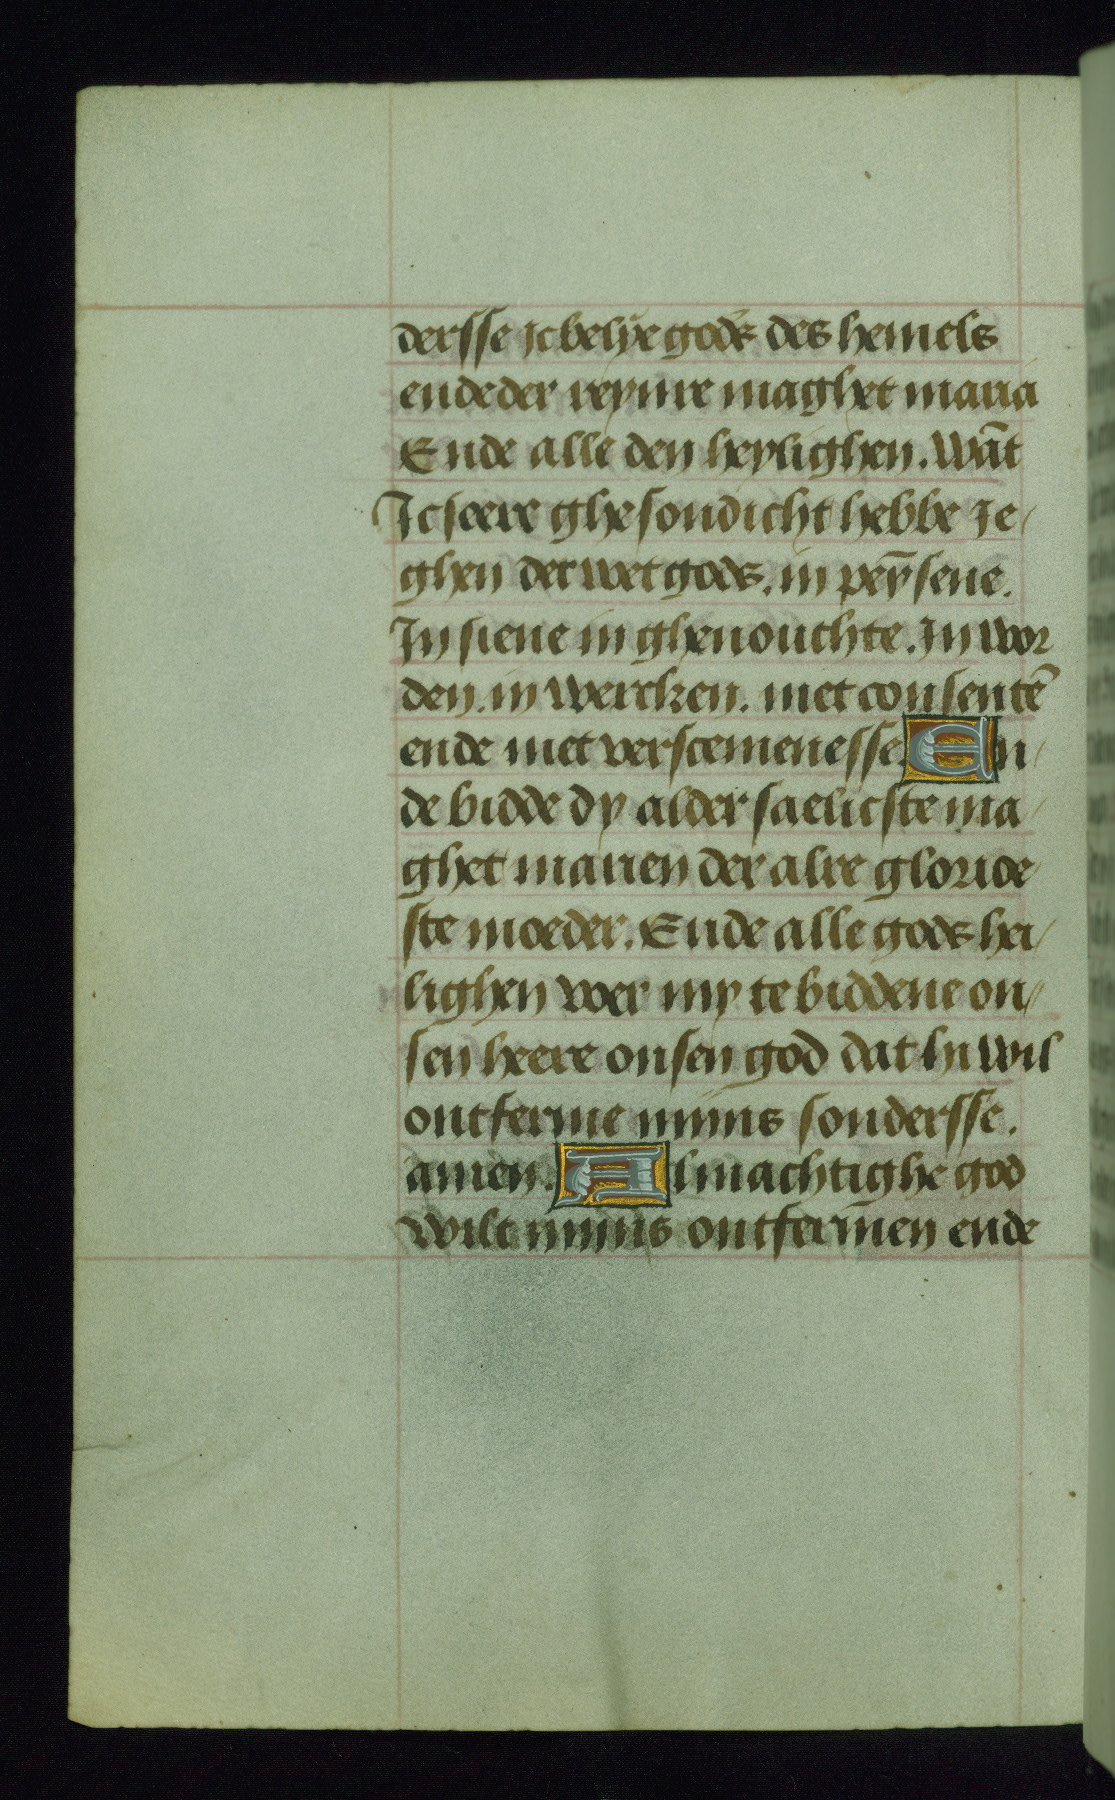 dersse Jc belye gods des hemels
ende der reynre maghet maria
Ende alle den heylighen. Wāt
Jc seere ghesondicht hebbe Je/
ghen der wet gods. in peÿsene.
Jn siene in ghenouchte. Jn wor
den. in wercken. met consentē
ende met verscemenesse. En/
de bidde dy alder saelicste ma/
ghet marien der alre glorioe
ste moeder. Ende alle gods hei/
lighen voer my te biddene on/
sen heere onsen god dat hi wil
ontferme mijns sondersse.
amen. Almachtighe god
wilt mijns ontfermen ende